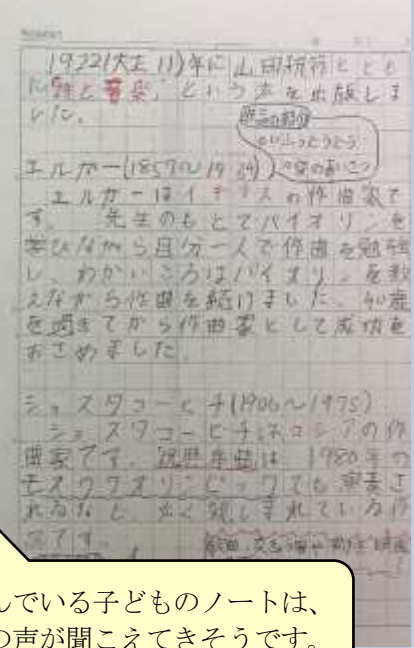 1922(大正11)年に山田耕筰ととも
に「詩と音楽」という本を出版しま
した。
作品の紹介
○いふうどうどう
○愛のあいさつ
エルガー(1857〜1934)
エルガーはイギリスの作曲家で
す。先生のもとでバイオリンを
学びながら自分一人で作曲を勉強
し、わかいころはバイオリンを教
えながら作曲を続けました。40歳
を過ぎてから作曲家として成功を
おさめました。
ショスタコービチ(1906〜1975)
ショスタコービチはロシアの作
曲家です。祝典序曲は1980年の
モスクワオリンピックでも演奏さ
れるなど、広く親しまれている作
品です。
んでいる子どものノートは、
の声が聞こえてきそうです。